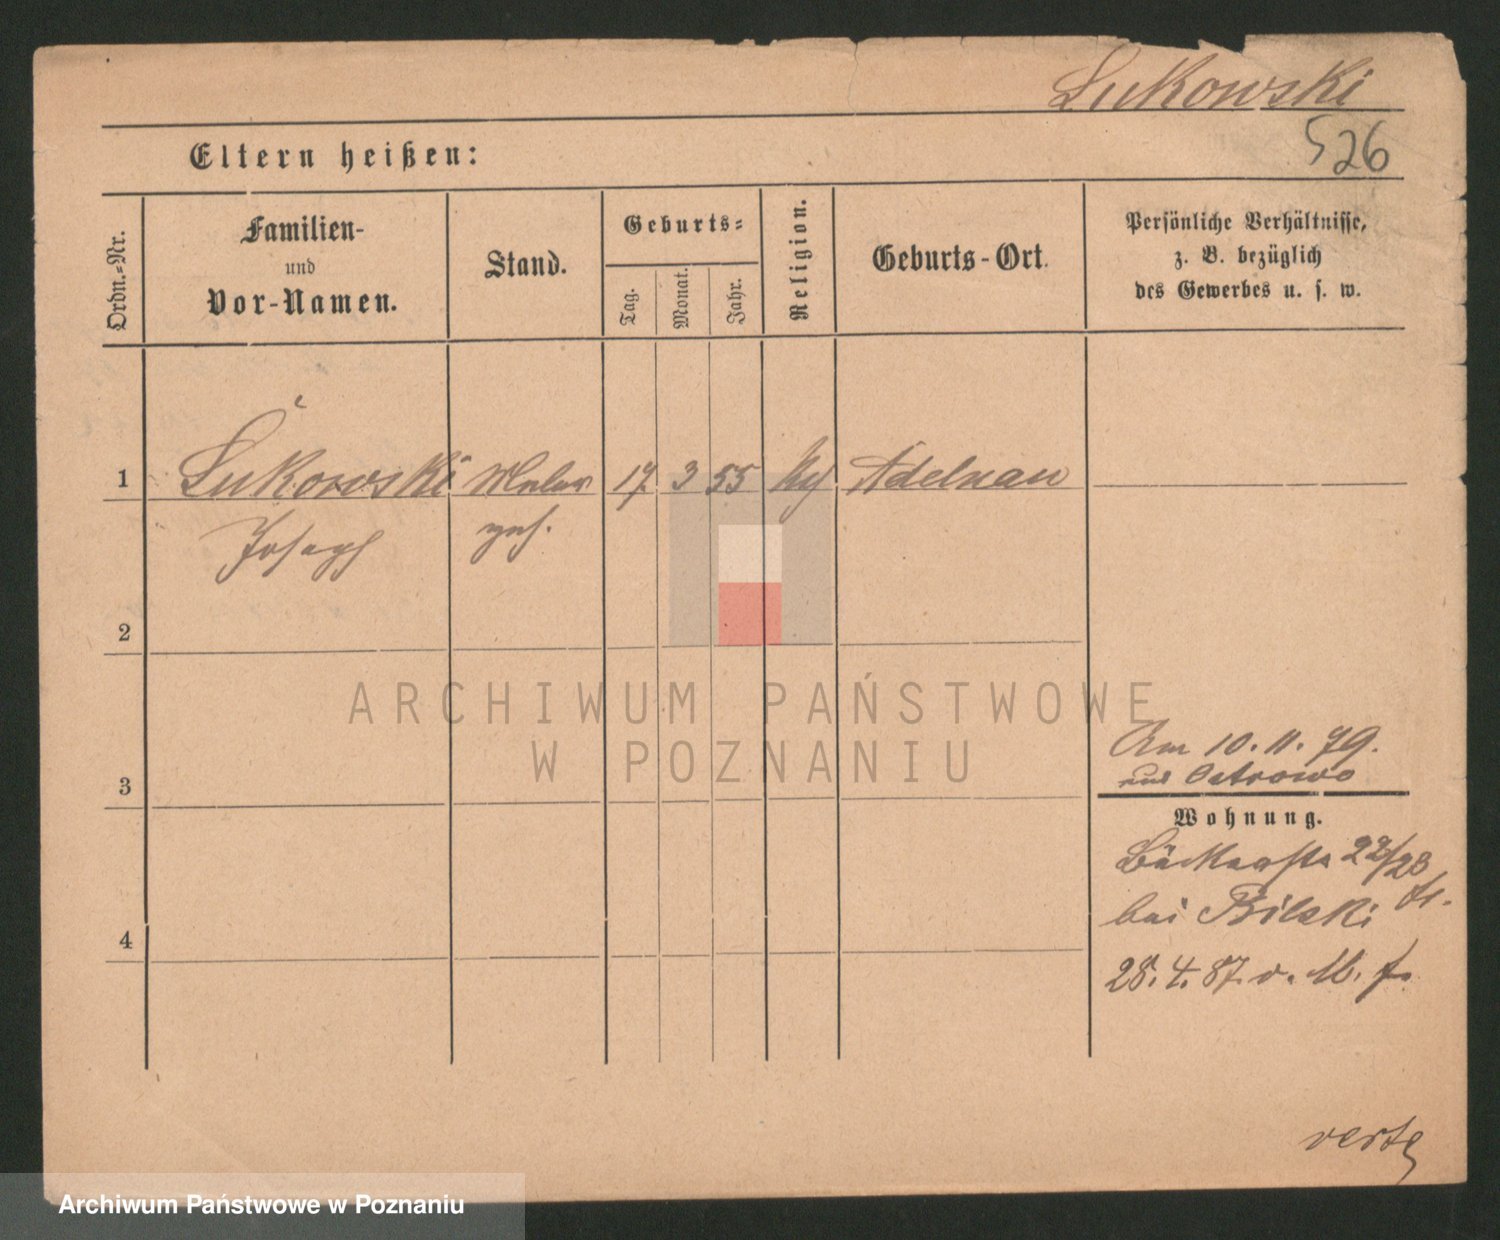 Lukowski
526
Eltern heißen:
Ordn.-Nr.
Familien-
und
Vor-Namen.
Stand.
Geburts-
Tag.
Monat.
Jahr.
Religion.
Geburts-Ort.
Persönliche Verhältnisse,
z. B. bezüglich
des Gewerbes u. s. w.
1
Lukowski Maler 17 3 55 Adelnau
Joseph
2
3
4
Am 10. 11. 79.
aus Ostrowo
Wohnung.
Bäckerstr 22/23
bei Bilski
28. 4. 87. v. M. f.
verte
ARCHIWUM PAŃSTWOWE
W POZNANIU
Archiwum Państwowe w Poznaniu